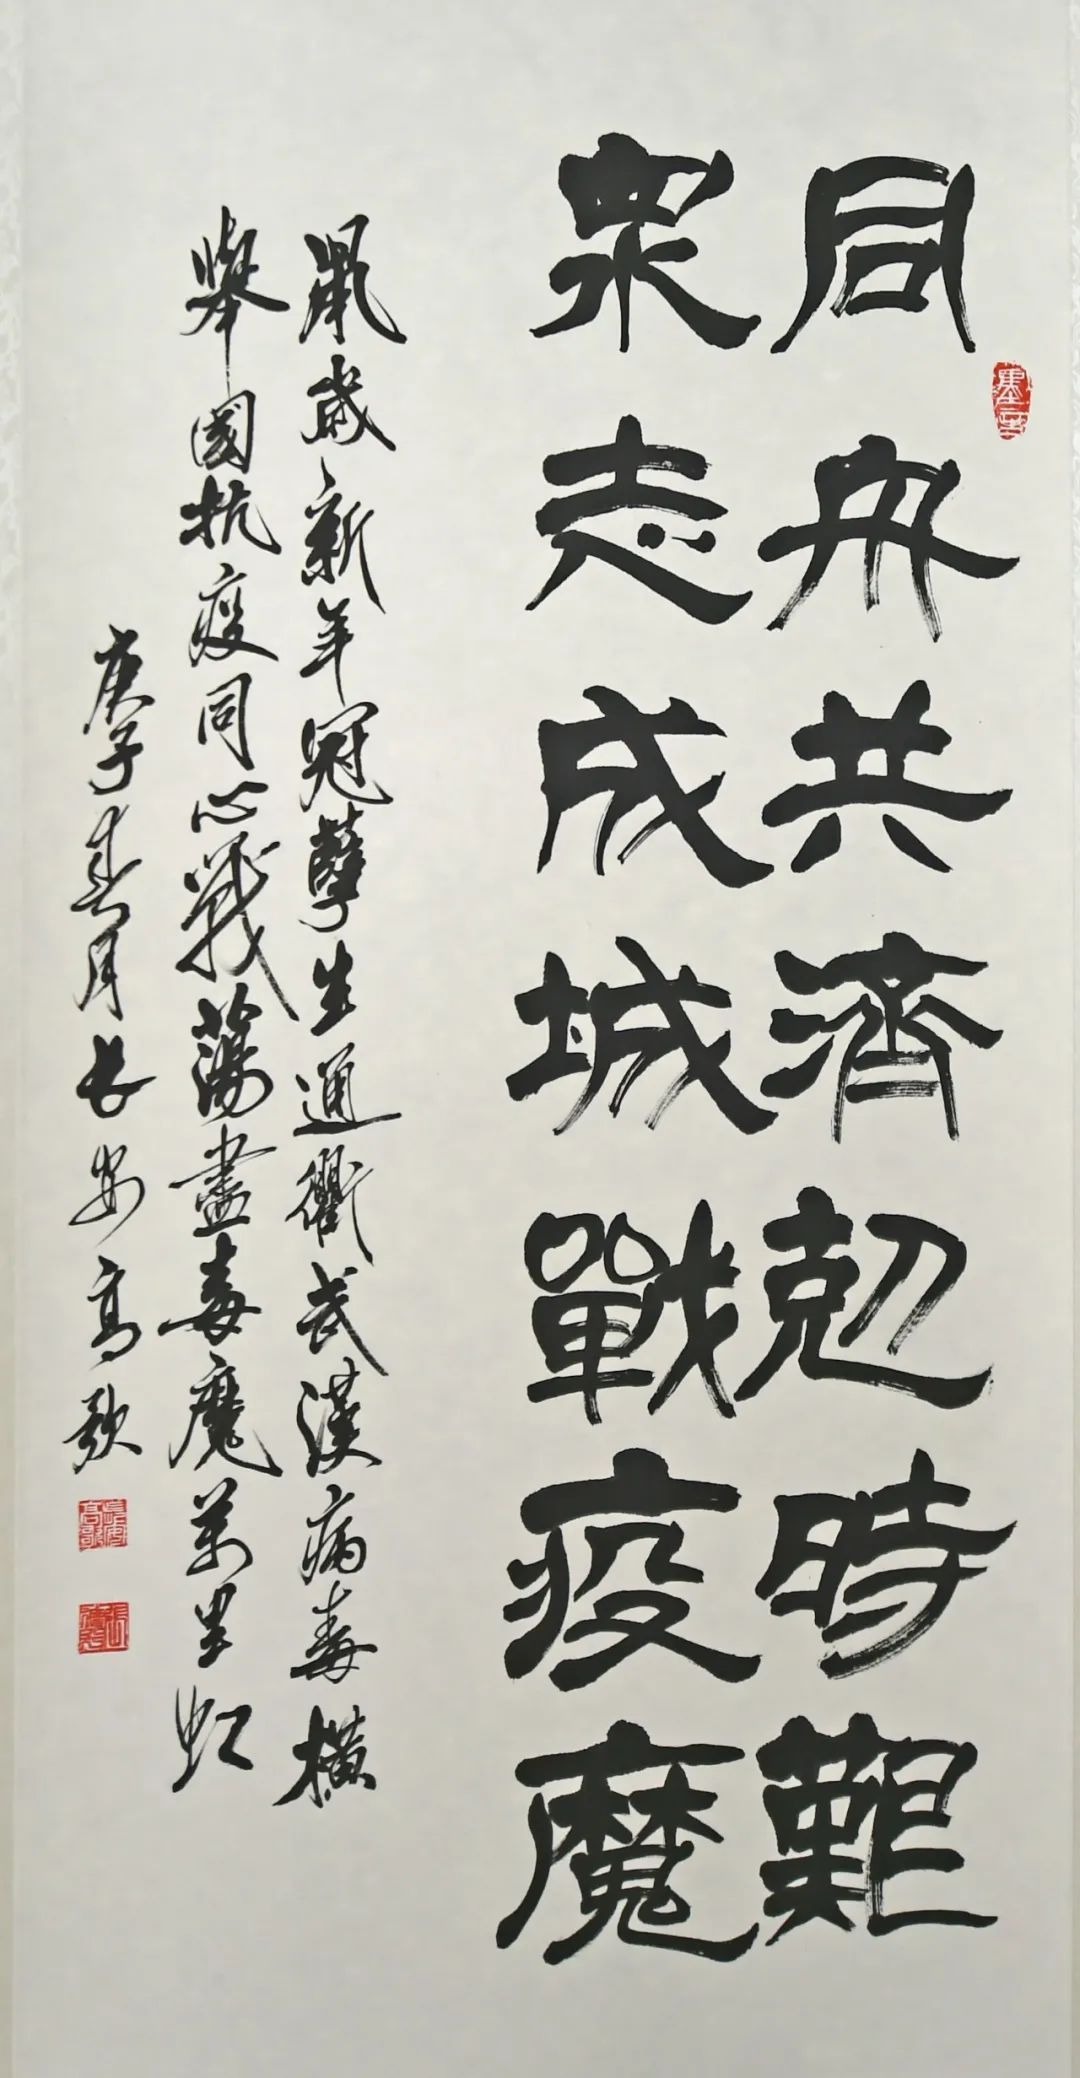 同舟共濟剋時艱
衆志成城戰疫魔
鼠歲新年冠孽生通衢武漢病毒橫
舉國抗疫同心戰蕩盡毒魔萬里虹
庚子春月長安高歌